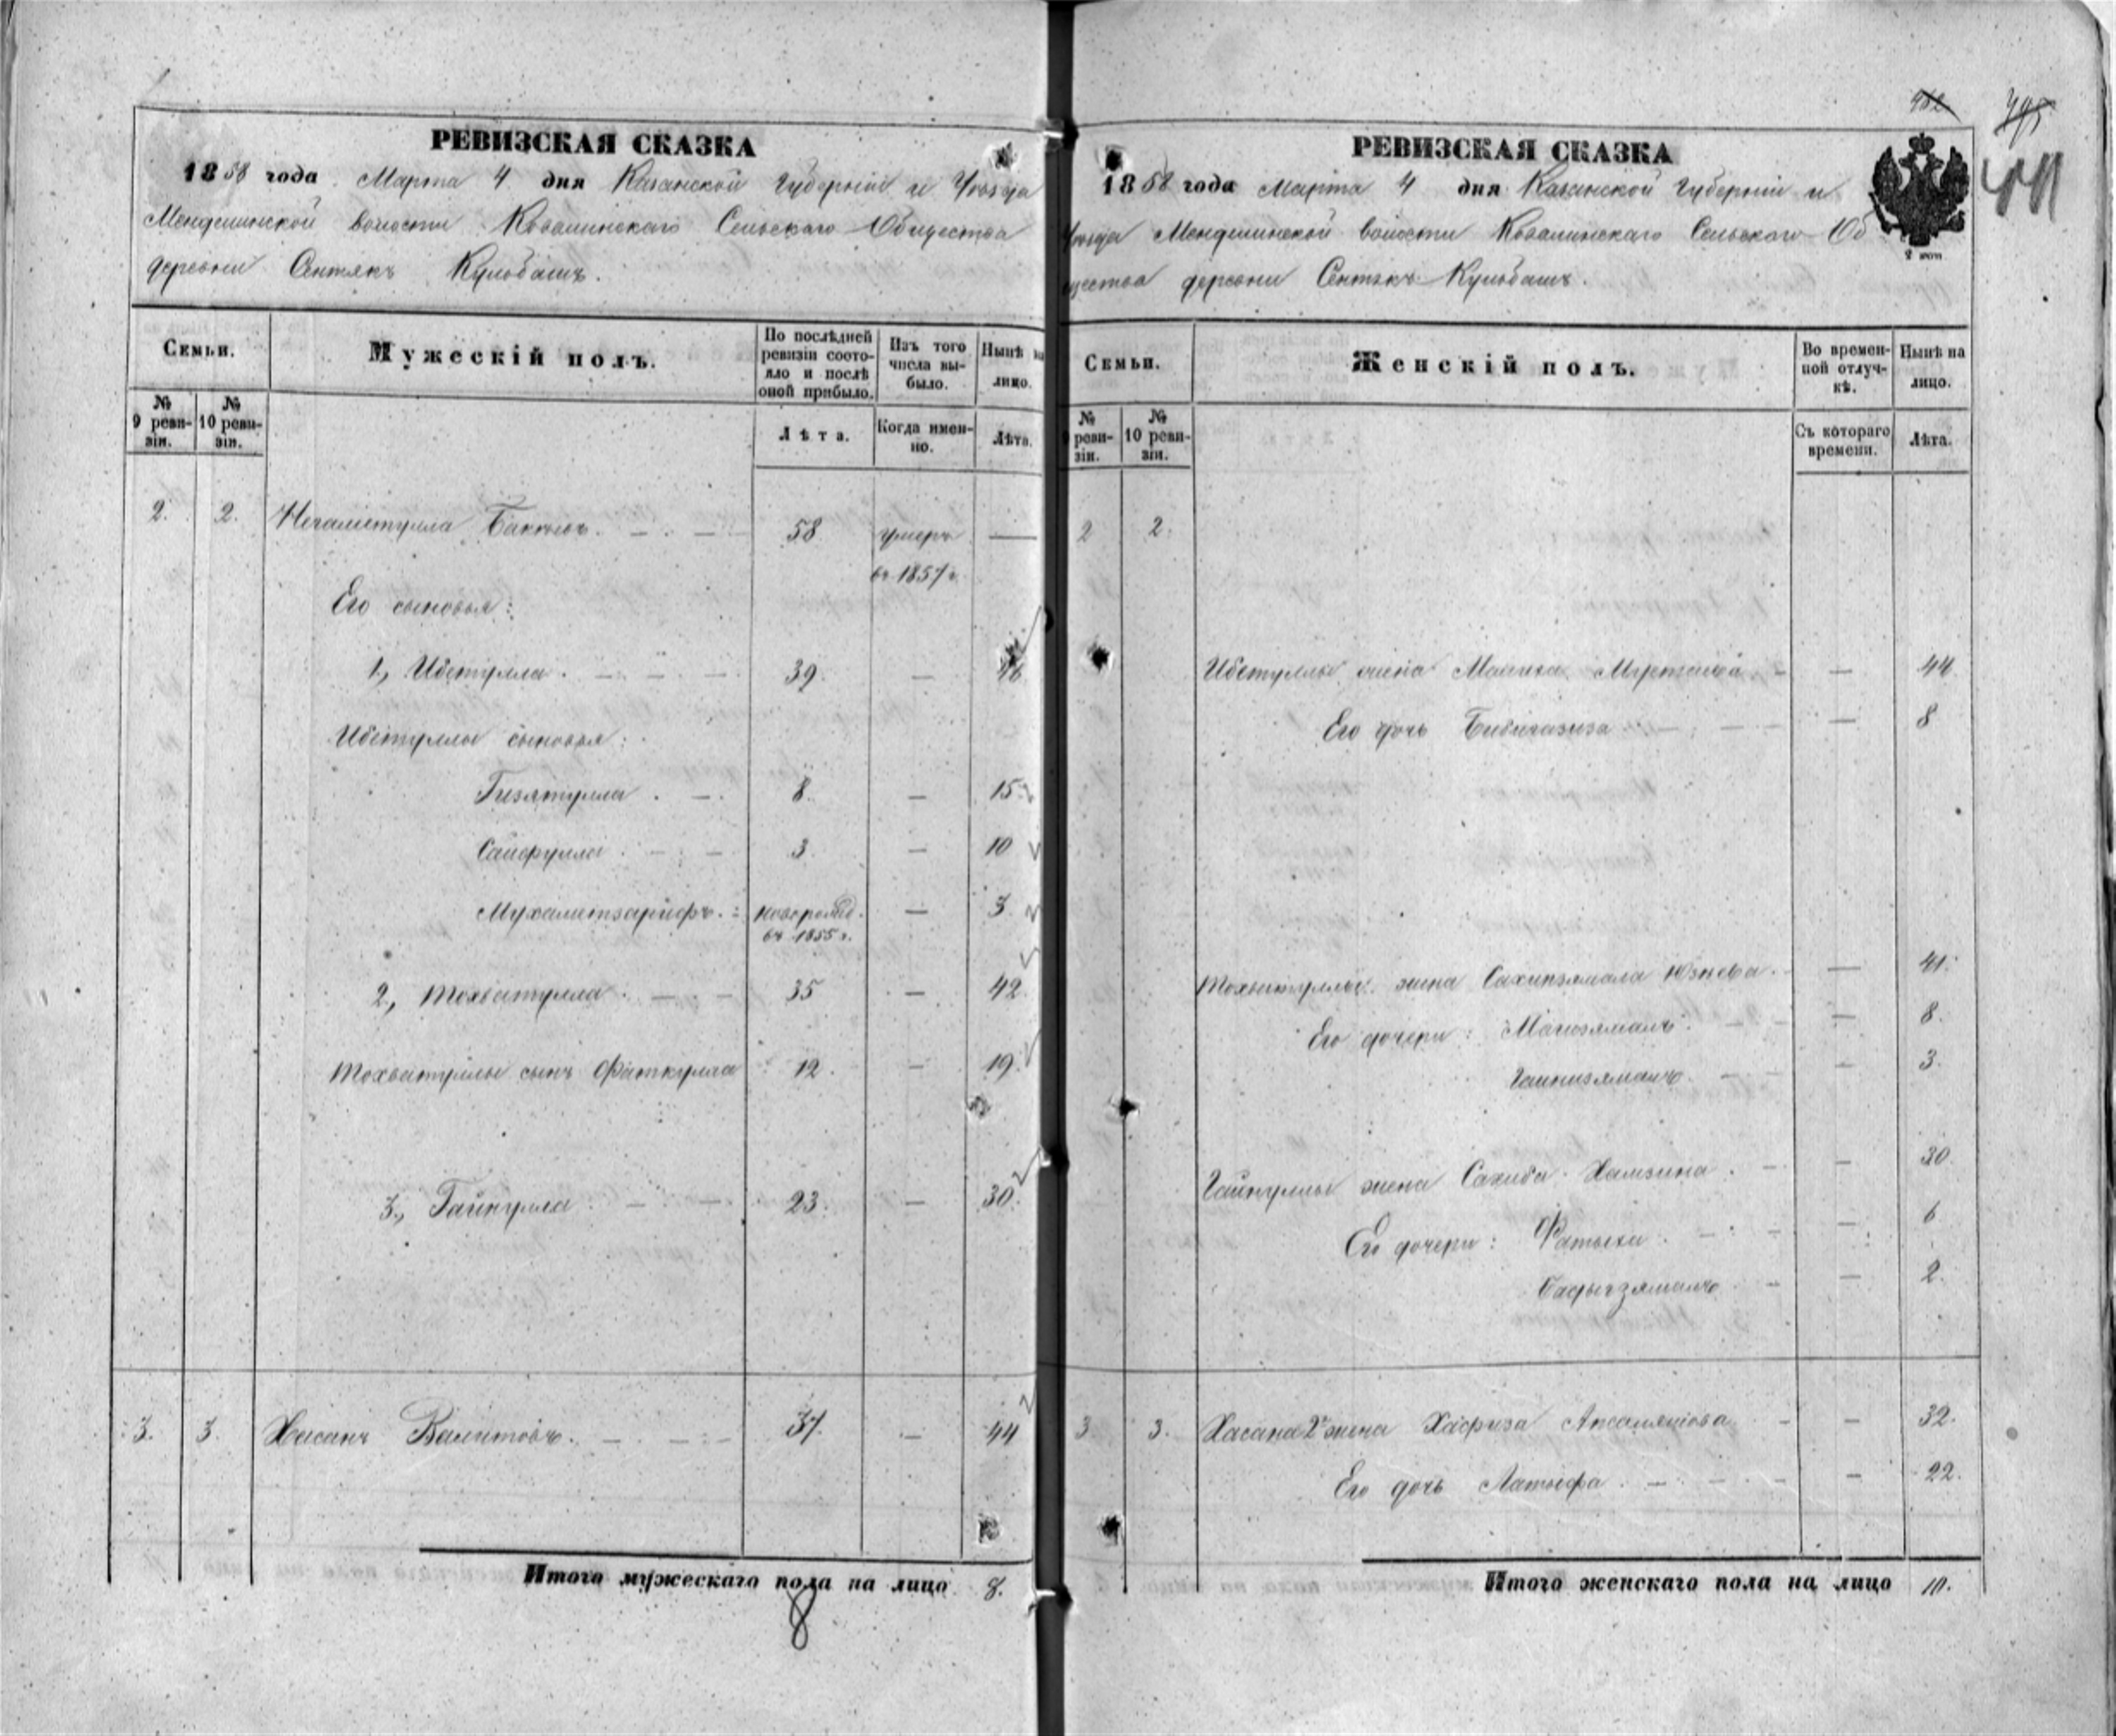 РЕВИЗСКАЯ СКАЗКА
1858 года Марта 4 дня Казанской Губернiи и Уѣзда
Менделинской волости Ковалинскаго Сельскаго Общества
деревни Сентякъ Кульбашъ.
Семьи.
Мужескiй полъ.
По послѣдней ревизiи состояло и послѣ оной прибыло.
Изъ того числа выбыло.
Нынѣ на лицо.
№ 9 ревизiи.
№ 10 ревизiи.
Лѣта.
Когда именно.
Лѣта.
2. 2. Негаметулла 58 умеръ —
въ 1857 г.
Его сыновья:
1, Ибетулла 39 — 46
Ибетуллы сыновья:
Гизятулла 8. — 15
Сайфулла 3. — 10
Мухаметзарифъ новорожд. — 3
въ 1855 г.
2, Мохватулла 35 — 42
Мохватуллы сынъ Фаткулла 12. — 19.
3, Гайнулла 23. — 30.
3. 3. Хасанъ Валитовъ 37. — 44
Итого мужескаго пола на лицо 8.
8
РЕВИЗСКАЯ СКАЗКА
1858 года Марта 4 дня Казанской Губернiи и
Уѣзда Менделинской волости Ковалинскаго Сельскаго Об
щества деревни Сентякъ Кульбашъ.
Семьи.
Женскiй полъ.
Во временной отлучкѣ.
Нынѣ на лицо.
№ ревизiи.
№ 10 ревизiи.
Съ котораго времени.
Лѣта.
2 2.
Ибетуллы жена Малика — 44
Его дочь Бибигазиза — 8
Мохватуллы жена Сахипзямала — 41.
Его дочери: — 8.
Гайнизямалъ — 3.
Гайнуллы жена Сахиба Хамзина — 30
Его дочери: Фатыха — 6
— 2.
3 3. Хасана 2я жена Хафиза — 32.
Его дочь Латыфа — 22.
Итого женскаго пола на лицо 10.